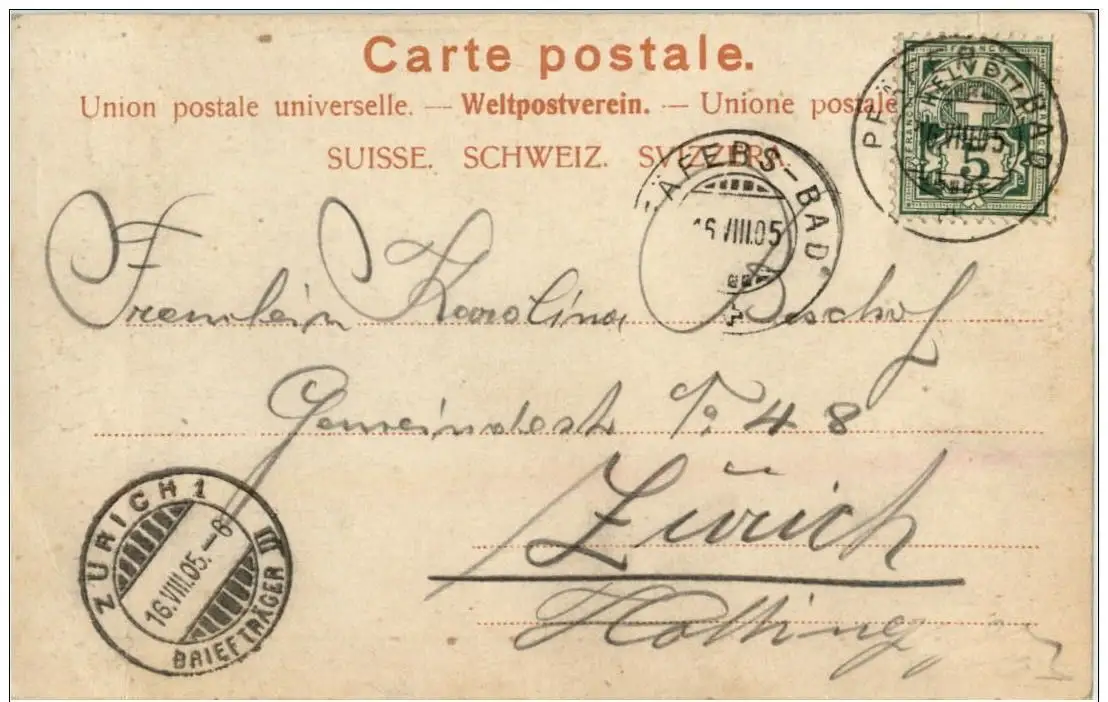 Carte postale.
Union postale universelle. — Weltpostverein. — Unione postale
SUISSE. SCHWEIZ. SVIZZERA.
HELVETIA
FRANCO
5
PF BAD
16.VIII.05
ÄFERS-BAD
16.VIII.05
Fraulein Karolina Bischof
Gemeindestr No 48
Zürich
Hotting
ZÜRICH 1
16.VIII.05.-8
BRIEFTRÄGER III